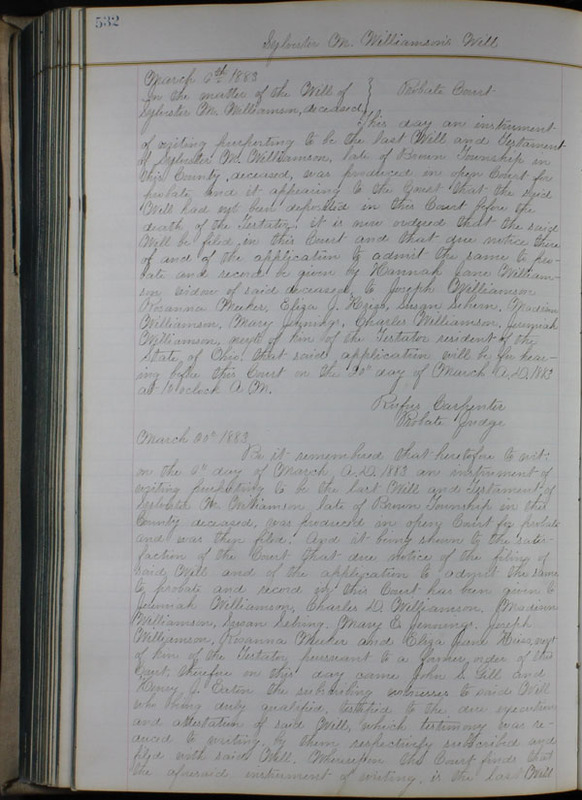 532
Sylvester M. Williamson's Will
March 6th 1883
In the matter of the Will of
Sylvester M. Williamson, deceased
Probate Court
This day an instrument
of writing purporting to be the last Will and Testament
of Sylvester M. Williamson, late of Brown Township in
this County, deceased, was produced in open Court for
probate, and it appearing to the Court that the said
Will had not been deposited in this Court before the
death of the Testator, it is now ordered that the said
Will be filed in this Court and that due notice there
of and of the application to admit the same to pro-
bate and record be given by Hannah Jane William-
son widow of said deceased, to Joseph Williamson
Rosanna Meeker, Eliza J. Susan Madison
Williamson, Mary Jennings, Charles Williamson, Jeremiah
Williamson, next of kin of the Testator resident of the
State of Ohio, that said application will be for hear-
ing before this Court on the 20th day of March A.D. 1883
at 10 o'clock A M.
Rufus Carpenter
Probate Judge
March 20th 1883
Be it remembered that heretofore to wit:
on the 6th day of March A.D. 1883 an instrument of
writing purporting to be the last Will and Testament of
Sylvester M. Williamson late of Brown Township in this
County deceased, was produced in open Court for probate
and was then filed. And it being shown to the satis-
faction of the Court that due notice of the filing of
said Will and of the application to admit the same
to probate and record in this Court has been given to
Jeremiah Williamson, Charles D. Williamson, Madison
Williamson, Susan Mary E Jennings, Joseph
Williamson, Rosanna Meeker and Eliza Jane next
of kin of the Testator pursuant to a former order of this
Court, therefore on this day came John S. Gill and
Henry J. the subscribing witnesses to said Will
who being duly qualified, testified to the due execution
and attestation of said Will, which testimony was re-
duced to writing, by them respectively subscribed and
filed with said Will. Whereupon the Court finds that
the aforesaid instrument of writing, is the last Will